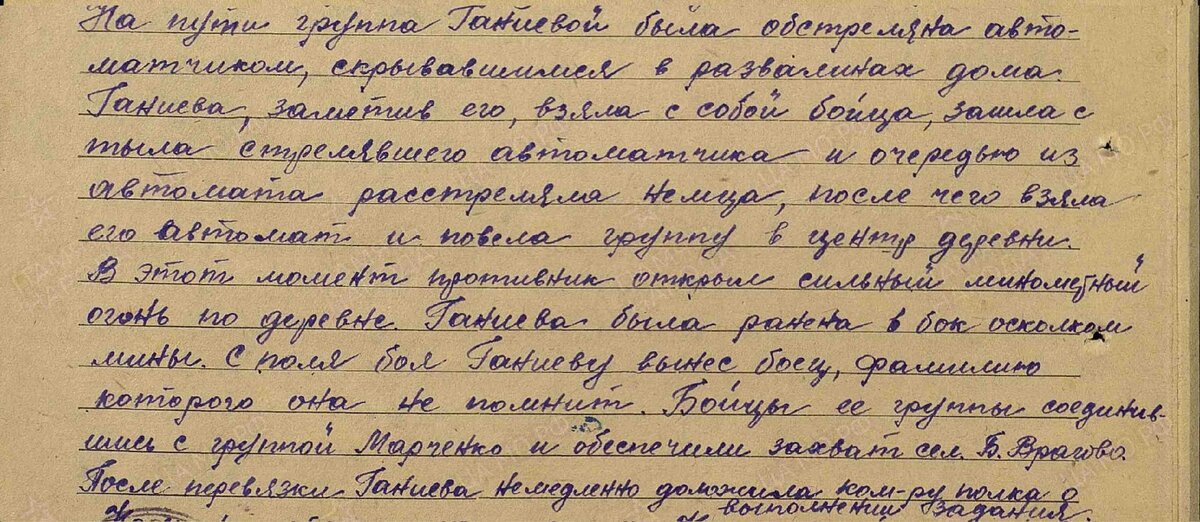 На пути группа Ганиевой была обстреляна авто-
матчиком, скрывавшимся в развалинах дома
Ганиева, заметив его, взяла с собой бойца, зашла с
тыла стрелявшего автоматчика и очередью из
автомата расстреляла немца, после чего взяла
его автомат и повела группу в центр деревни.
В этот момент противник открыл сильный минометный
огонь по деревне. Ганиева была ранена в бок осколком
мины. С поля боя Ганиеву вынес боец, фамилию
которого она не помнит. Бойцы ее группы соединив-
шись с группой Марченко и обеспечили захват сел. Б. Врагово.
После перевязки Ганиева немедленно доложила ком-ру полка о
выполнении задания.